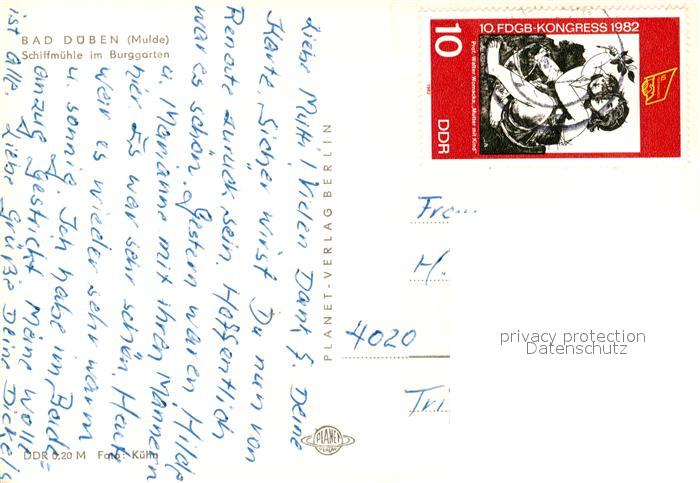 BAD DÜBEN (Mulde)
Schiffmühle im Burggarten
Liebe Mutti! Vielen Dank f. Deine
Karte. Sicher wirst Du nun von
Renate zurück sein. Hoffentlich
war es schön. Gestern waren Hilde
u. Marianne mit ihren Männern
hier. Es war sehr schön. Heute
war es wieder sehr warm
u. sonnig. Ich habe im Bade-
anzug gestrickt. Meine Wolle
ist alle. Liebe Grüße Deine Dickels
DDR 0,20 M Foto: Kühn
PLANET-VERLAG BERLIN
PLANET
VERLAG
10. FDGB-KONGRESS 1982
10
DDR
Prof. Walter Womacka, „Mutter mit Kind"
1982
Frau
H.
4020
Tri
privacy protection
Datenschutz